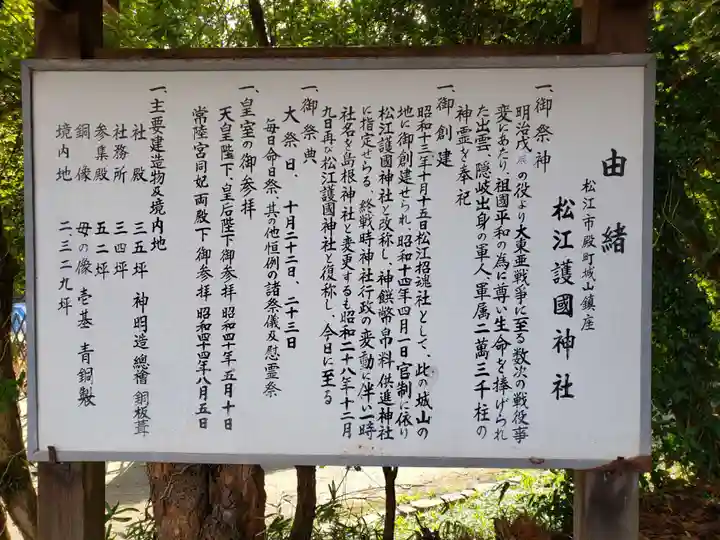 由緒
松江市殿町城山鎮座
松江護國神社
一、御祭神
明治戊辰の役より大東亜戦争に至る数次の戦役事
変にあたり、祖國平和の為に尊い生命を捧げられ
た出雲、隠岐出身の軍人、軍属二萬三千柱の
神霊を奉祀
一、御創建
昭和十三年十月十五日松江招魂社として、此の城山の
地に御創建せられ、昭和十四年四月一日官制に依り
松江護國神社と改称し、神饌幣帛料供進神社
に指定せらる、終戦時神社行政の変動に伴い一時
社名を島根神社と変更するも昭和二十八年十二月
九日再び松江護國神社と復称し、今日に至る
一、御祭典
大祭日、十月二十二日、二十三日
毎日命日祭、其の他恒例の諸祭儀及慰霊祭
一、皇室の御参拝
天皇陛下、皇后陛下御参拝 昭和四十年五月十日
常陸宮同妃両殿下御参拝 昭和四十四年八月五日
一、主要建造物及境内地
社殿 三五坪 神明造總檜銅板葺
社務所 三四坪
参集殿 五二坪
銅像 母の像 壱基 青銅製
境内地 二三二九坪